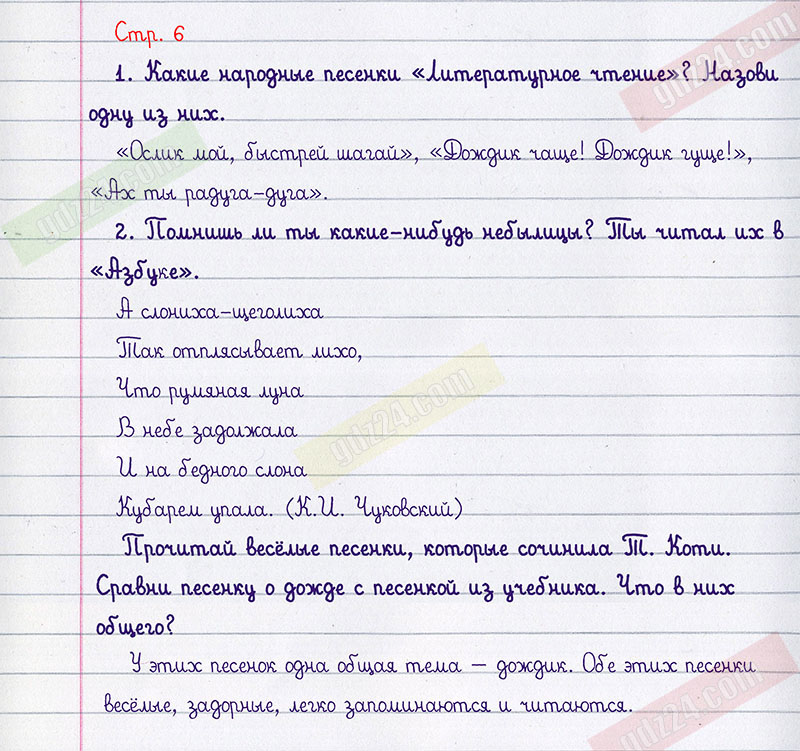 Стр. 6
1. Какие народные песенки «Литературное чтение»? Назови
одну из них.
«Ослик мой, быстрей шагай», «Дождик чаще! Дождик гуще!»,
«Ах ты радуга-дуга».
2. Помнишь ли ты какие-нибудь небылицы? Ты читал их в
«Азбуке».
А слониха-щеголиха
Так отплясывает лихо,
Что румяная луна
В небе задолжала
И на бедного слона
Кубарем упала. (К.И. Чуковский)
Прочитай весёлые песенки, которые сочинила Т. Коти.
Сравни песенку о дожде с песенкой из учебника. Что в них
общего?
У этих песенок одна общая тема – дождик. Обе этих песенки
весёлые, задорные, легко запоминаются и читаются.
gdz24.com
gdz24.com
gdz24.com
gdz24.com